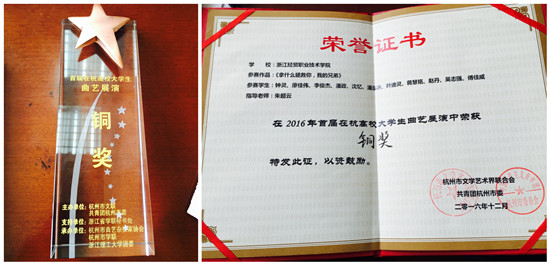 首届在杭高校大学生
曲艺展演
铜奖
主办单位：杭州市文联
共青团杭州市委
支持单位：浙江省学联秘书处
承办单位：杭州市曲艺家协会
杭州市学联
浙江理工大学团委
荣誉证书
学 校：浙江经贸职业技术学院
参赛作品：《拿什么拯救你，我的兄弟》
参赛学生：钟灵、廖佳伟、李俊杰、潘政、沈忆、
指导老师：朱超云
在2016年首届在杭高校大学生曲艺展演中荣获
铜奖
特发此证，以资鼓励。
杭州市文学艺术界联合会
共青团杭州市委
二零一六年十二月